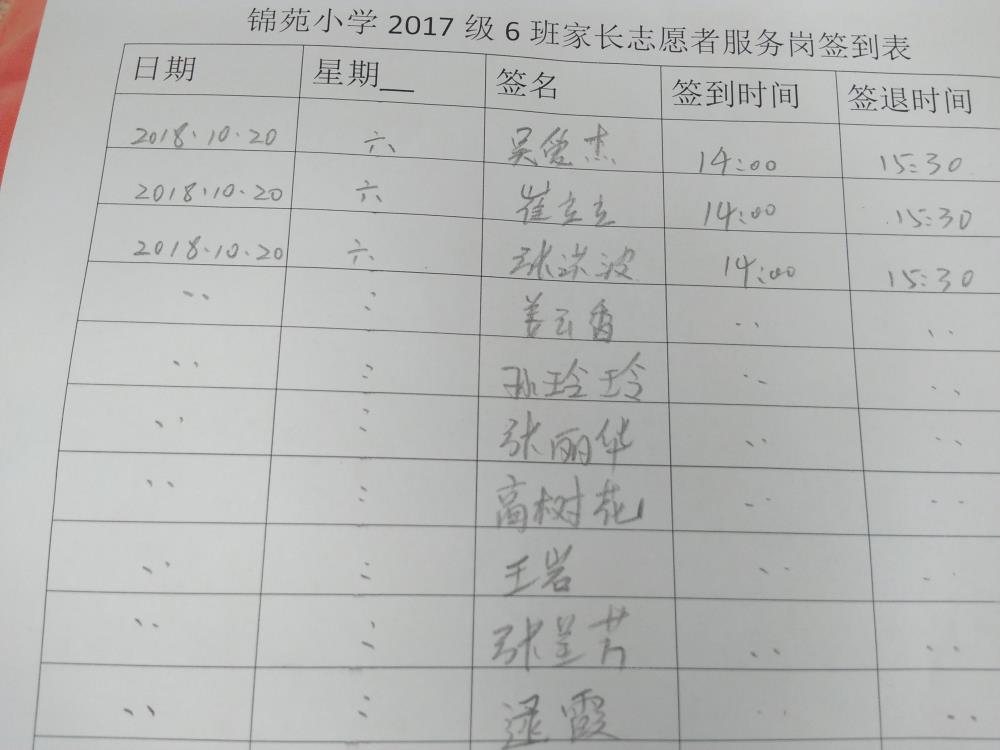 锦苑小学2017级6班家长志愿者服务岗签到表
日期 星期__ 签名 签到时间 签退时间
2018.10.20 六 吴俊杰 14:00 15:30
2018.10.20 六 崔立立 14:00 15:30
2018.10.20 六 张洪波 14:00 15:30
〃 〃 姜云香 〃 〃
〃 〃 孙玲玲 〃 〃
〃 〃 张丽华 〃 〃
〃 〃 高树花 〃 〃
〃 〃 王岩 〃 〃
〃 〃 张兰芳 〃 〃
〃 〃 逯霞 〃 〃